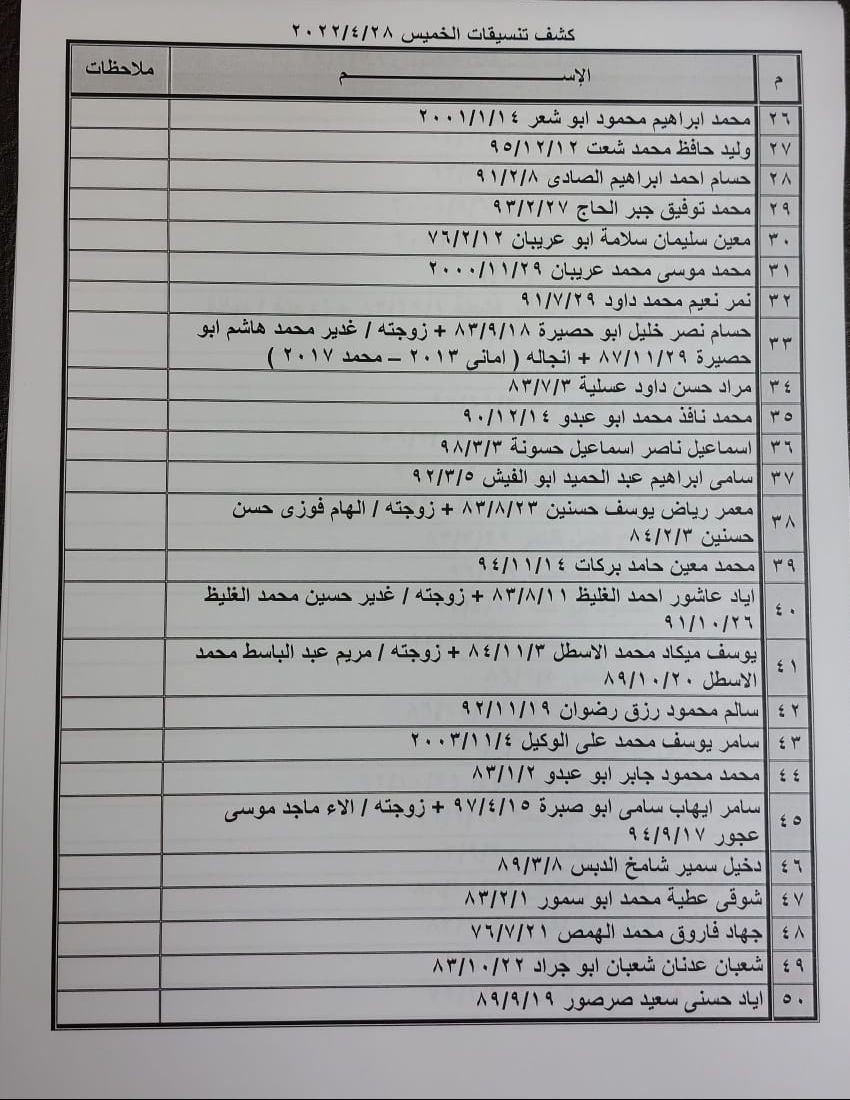 كشف تنسيقات الخميس ٢٠٢٢/٤/٢٨
م الإســـــــــم ملاحظات
٢٦ محمد ابراهيم محمود ابو شعر ٢٠٠١/١/١٤
٢٧ وليد حافظ محمد شعت ٩٥/١٢/١٢
٢٨ حسام احمد ابراهيم الصادى ٩١/٢/٨
٢٩ محمد توفيق جبر الحاج ٩٣/٢/٢٧
٣٠ معين سليمان سلامة ابو عريبان ٧٦/٢/١٢
٣١ محمد موسى محمد عريبان ٢٠٠٠/١١/٢٩
٣٢ نمر نعيم محمد داود ٩١/٧/٢٩
٣٣ حسام نصر خليل ابو حصيرة ٨٣/٩/١٨ + زوجته / غدير محمد هاشم ابو
حصيرة ٨٧/١١/٢٩ + انجاله ( امانى ٢٠١٣ – محمد ٢٠١٧ )
٣٤ مراد حسن داود عسلية ٨٣/٧/٣
٣٥ محمد نافذ محمد ابو عبدو ٩٠/١٢/١٤
٣٦ اسماعيل ناصر اسماعيل حسونة ٩٨/٣/٣
٣٧ سامى ابراهيم عبد الحميد ابو الفيش ٩٢/٣/٥
٣٨ معمر رياض يوسف حسنين ٨٣/٨/٢٣ + زوجته / الهام فوزى حسن
حسنين ٨٤/٢/٣
٣٩ محمد معين حامد بركات ٩٤/١١/١٤
٤٠ اياد عاشور احمد الغليظ ٨٣/٨/١١ + زوجته / غدير حسين محمد الغليظ
٩١/١٠/٢٦
٤١ يوسف ميكاد محمد الاسطل ٨٤/١١/٣ + زوجته / مريم عبد الباسط محمد
الاسطل ٨٩/١٠/٢٠
٤٢ سالم محمود رزق رضوان ٩٢/١١/١٩
٤٣ سامر يوسف محمد على الوكيل ٢٠٠٣/١١/٤
٤٤ محمد محمود جابر ابو عبدو ٨٣/١/٢
٤٥ سامر ايهاب سامى ابو صبرة ٩٧/٤/١٥ + زوجته / الاء ماجد موسى
عجور ٩٤/٩/١٧
٤٦ دخيل سمير شامخ الدبس ٨٩/٣/٨
٤٧ شوقى عطية محمد ابو سمور ٨٣/٢/١
٤٨ جهاد فاروق محمد الهمص ٧٦/٧/٢١
٤٩ شعبان عدنان شعبان ابو جراد ٨٣/١٠/٢٢
٥٠ اياد حسنى سعيد صرصور ٨٩/٩/١٩